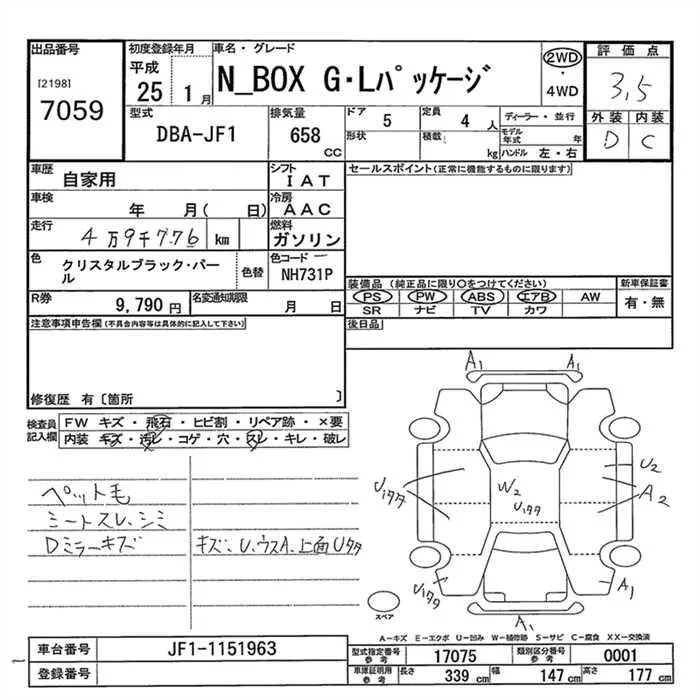 出品番号
[2198]
7059
初度登録年月
平成
25 1 月
車名・グレード
N_BOX G・Lパッケージ
2WD
・
4WD
評価点
3,5
外装 内装
D C
型式
DBA-JF1
排気量
658
CC
ドア 5
形状
定員 4 人
積載 kg
ディーラー・並行
モデル年式 年
ハンドル 左・右
車歴 自家用
シフト
IAT
セールスポイント(正常に機能するものに限ります)
車検 年 月( 日)
冷房
AAC
走行 4万9千776 km
燃料
ガソリン
色 クリスタルブラック・パール
色替
色コード
NH731P
装備品 (純正品に限り○をつけてください)
PS PW ABS エアB AW
SR ナビ TV カワ
新車保証書
有・無
R券 9,790 円
名変通知期限 月 日
後日品
注意事項申告欄(不具合内容等は具体的に記入して下さい)
修復歴 有〔箇所 〕
検査員
記入欄
FW キズ・飛石・ヒビ割・リペア跡・×要
内装 キズ・汚レ・コゲ・穴・スレ・キレ・破レ
ペット毛
シートスレ、シミ
Dミラーキズ
キズ、U、ウスA、上面Uタタ
A1 A1
U2
A2
Uｿﾀﾀ
W2
Uｿﾀﾀ
Uｿﾀﾀ
A1
A1
スペア
A-キズ E-エクボ U-凹み W-補修跡 S-サビ C-腐食 XX-交換済
車台番号 JF1-1151963
登録番号
型式指定番号
参考
17075
類別区分番号
参考
0001
車庫証明用
参考
長さ 339 cm
幅 147 cm
高さ 177 cm